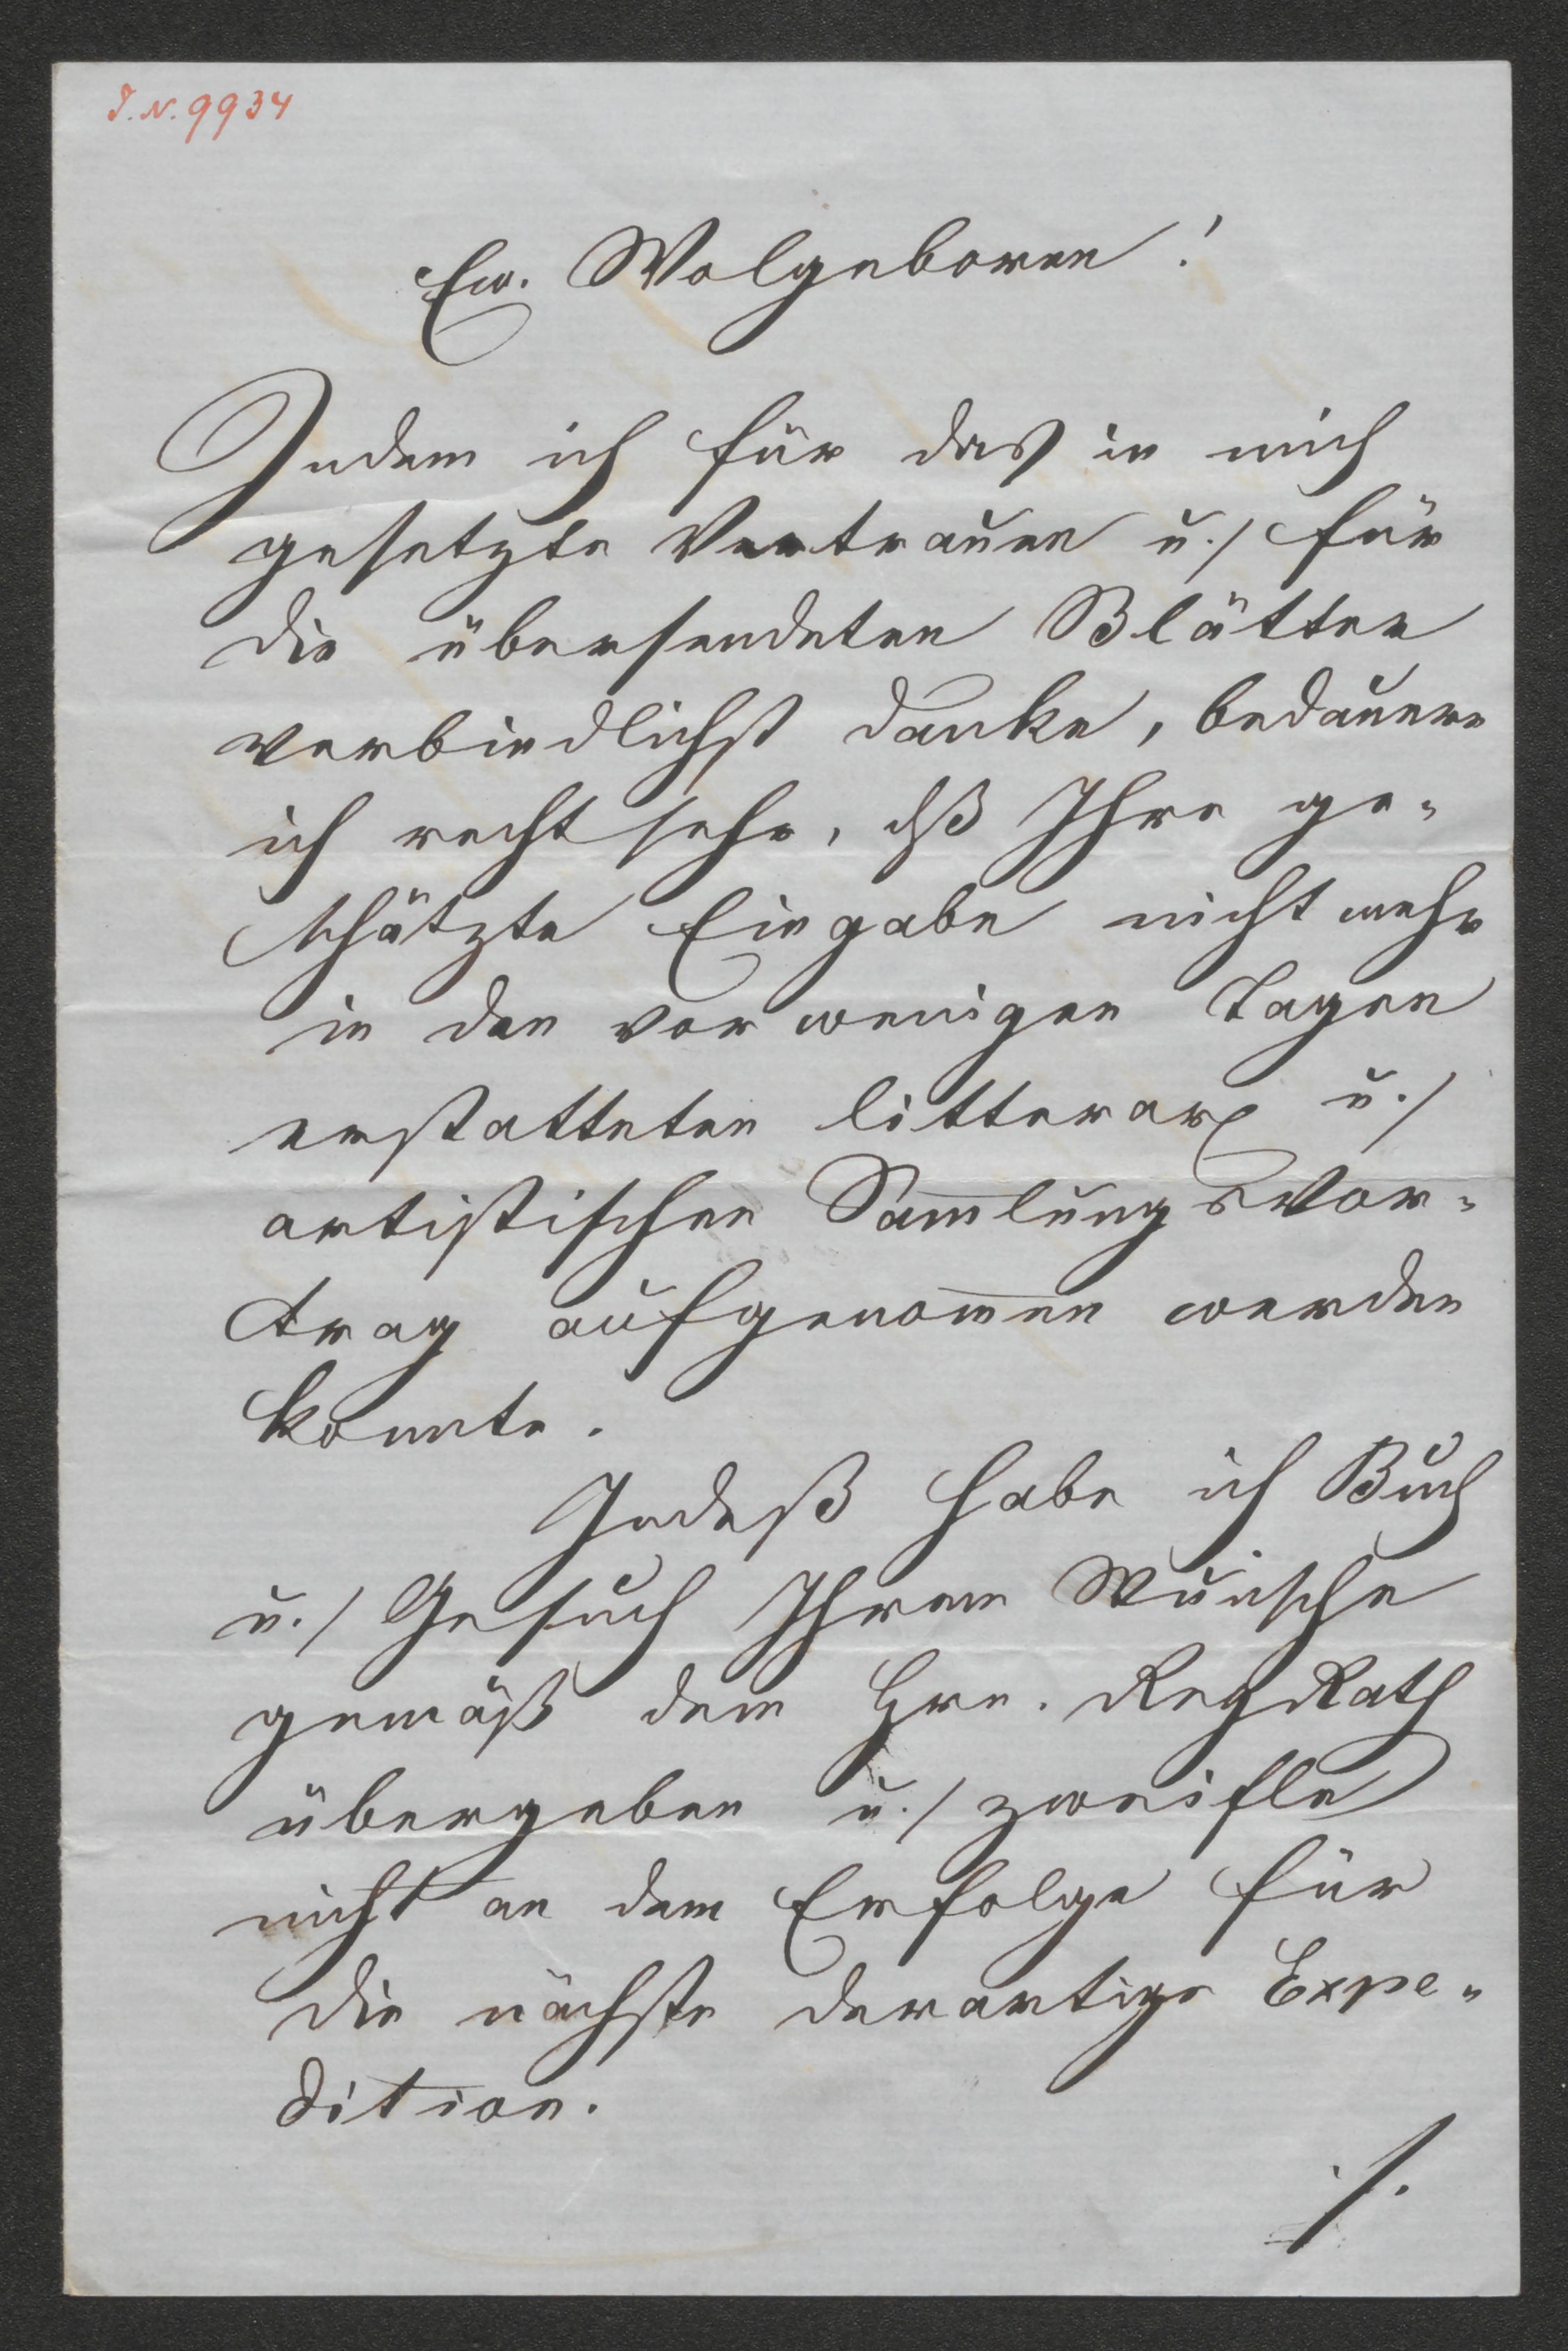 I.N. 9934
Ew. Wolgeboren!
Indem ich für das in mich
gesetzte Vertrauen u./ für
die übersendeten Blätter
verbindlichst danke, bedauere
ich recht sehr, dß Ihre ge-
schätzte Eingabe nicht mehr
in den vor wenigen Tagen
erstatteten litterar. u./
artistischen Sam̄lungsvor-
trag aufgenom̄en werden
konnte.
Indeß habe ich Buch
u./ Gesuch Ihrem Wunsche
gemäß dem Hrn. RegRath
übergeben u./ zweifle
nicht an dem Erfolge für
die nächste derartige Expe-
dition.
./.